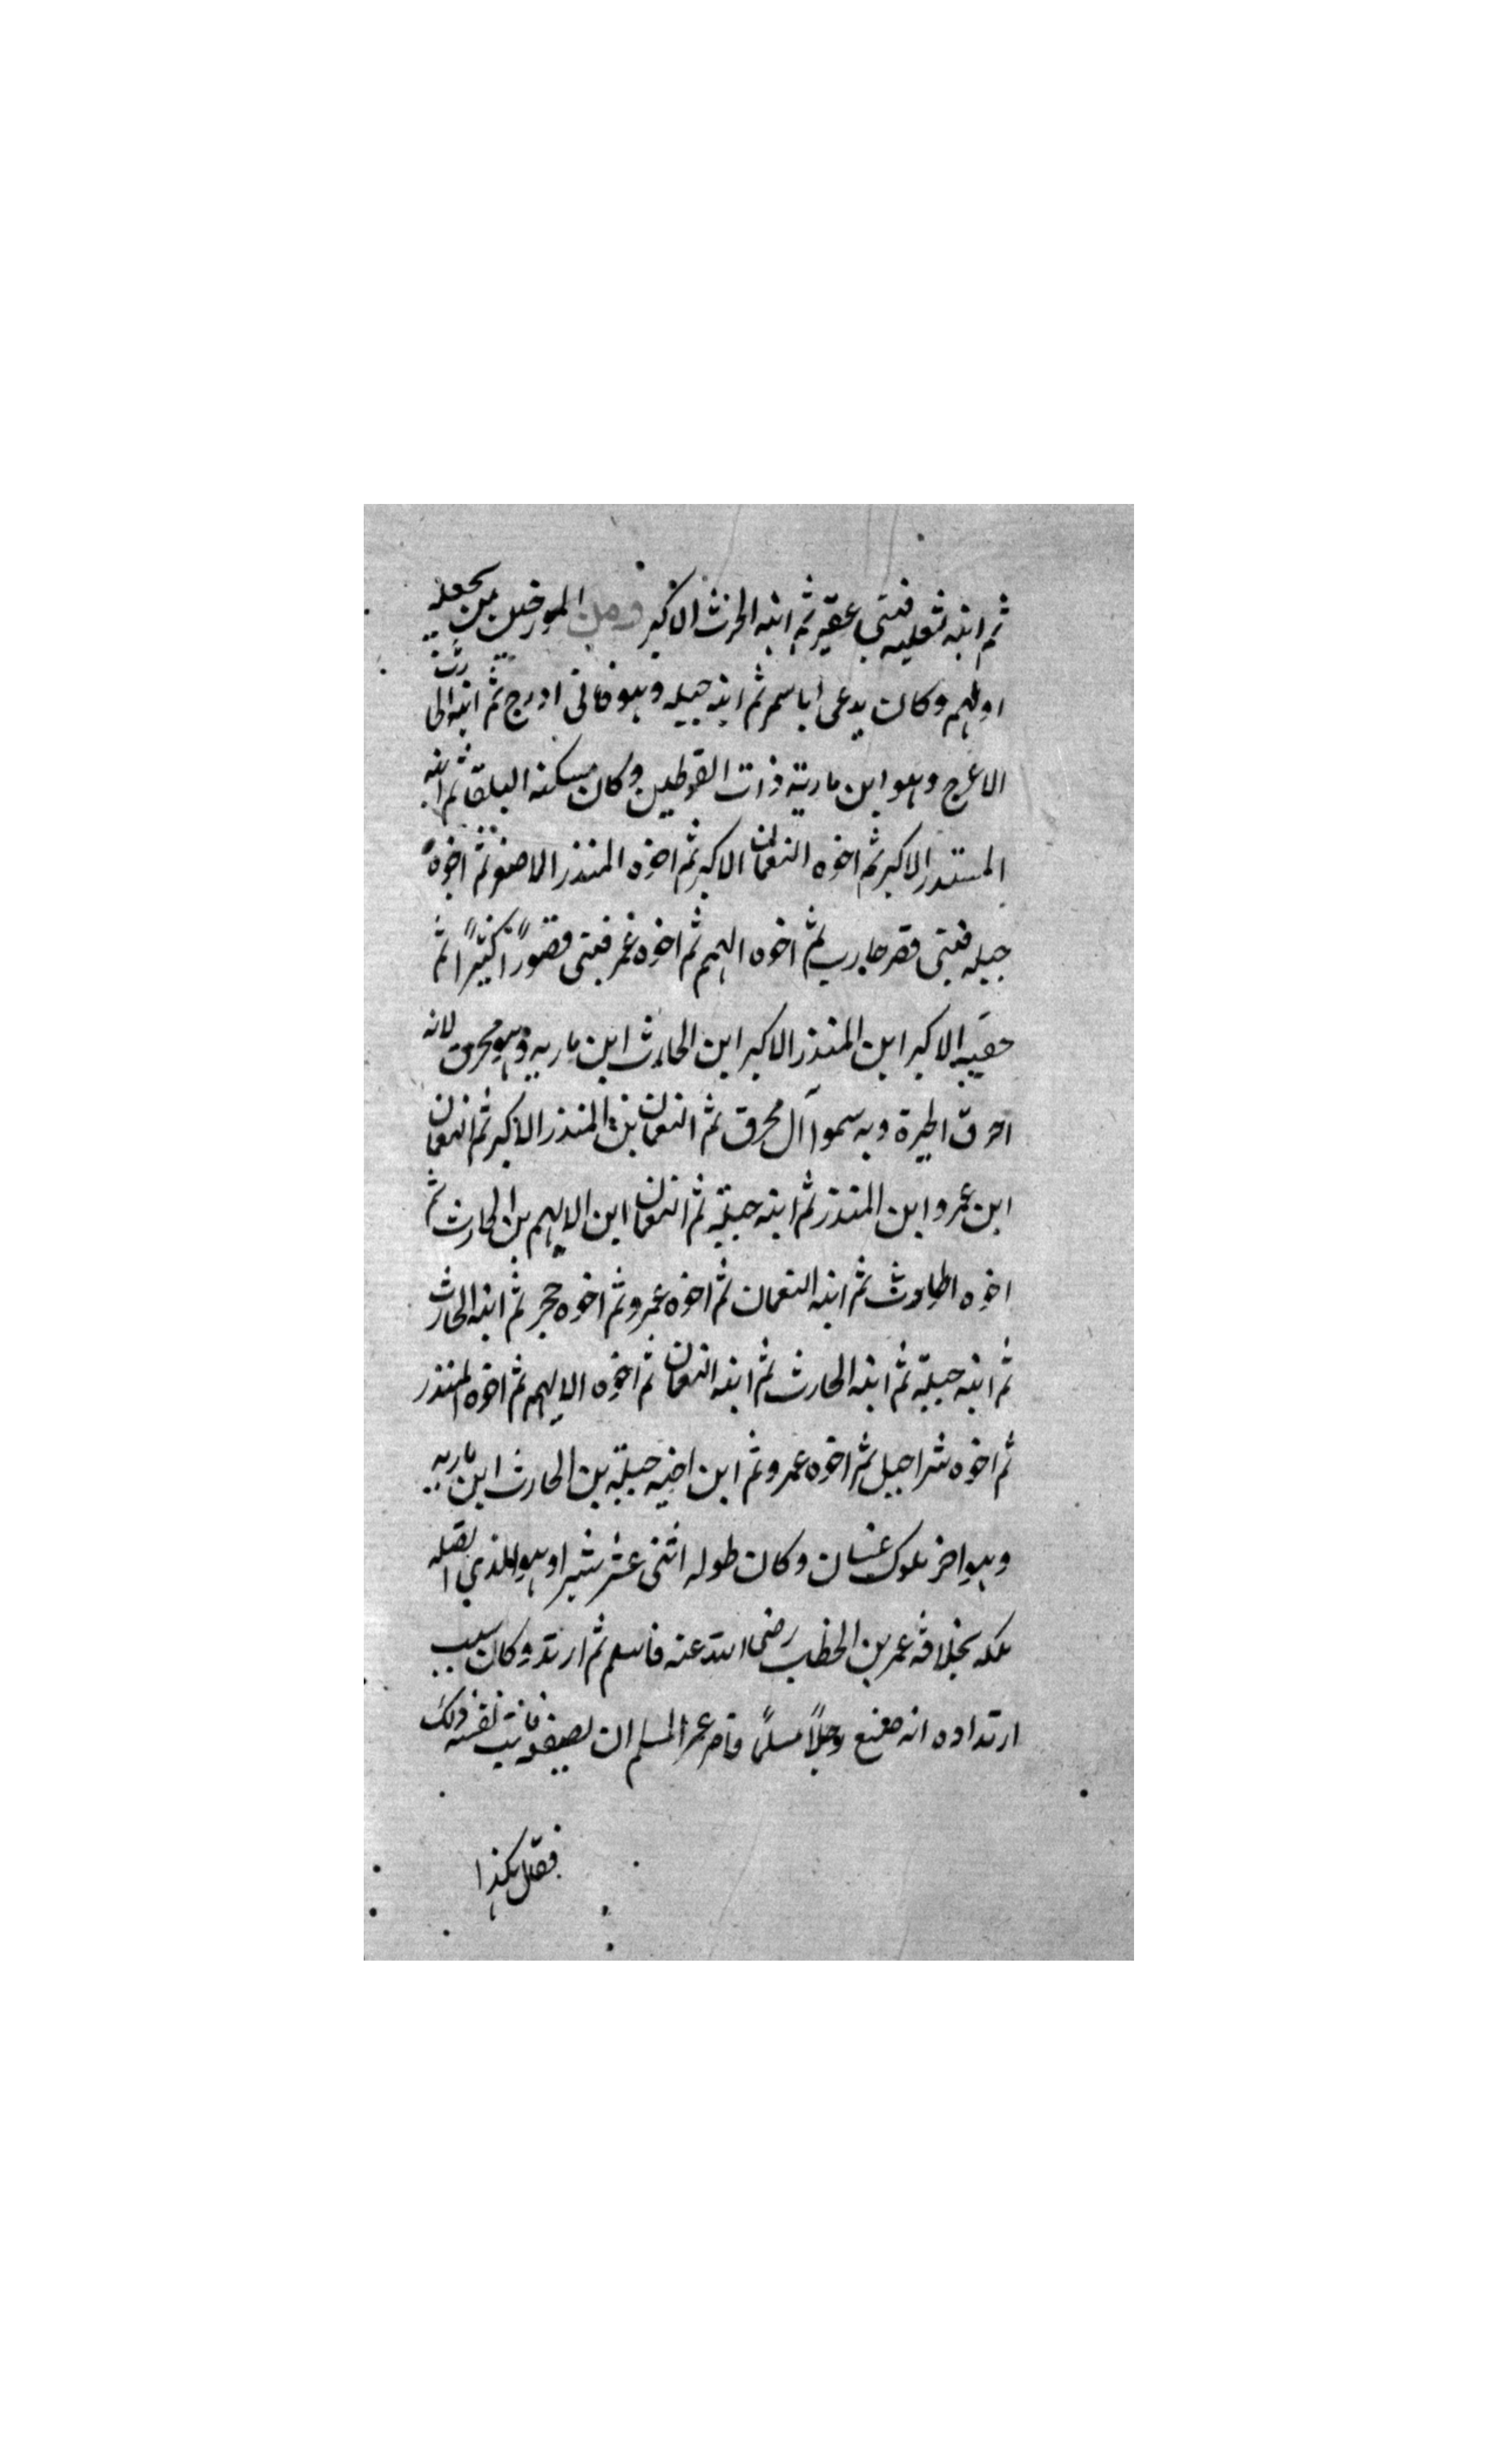 ثم ابنه ثعلبه فبنى عقير ثم ابنه الحرث الاكبر ومن المورخين من يجعله
اولهم وكان يدعى اباسمر ثم ابنه جبله وهو فانى ادرج ثم ابنه الحارث
الاعرج وهو ابن مارية ذات القرطين وكان مسكنه البلقا ثم ابنه
المنذر الاكبر ثم اخوه النعمان الاكبر ثم اخوه المنذر الاصغر ثم اخوه
جبله فبنى قصر حارب ثم اخوه الهم ثم اخوه عمر فبنى قصورًا كثيرًا ثم
حفيبه الاكبر ابن المنذر الاكبر ابن الحارث ابن ماريه وهو محرق لانه
احرق الحيرة وبه سموا آل محرق ثم النعمان بن المنذر الاكبر ثم النعمان
ابن عمرو ابن المنذر ثم ابنه جبلة ثم النعمان ابن الايهم بن الحارث ثم
اخوه الحارث ثم ابنه النعمان ثم اخوه عمرو ثم اخوه حجر ثم ابنه الحارث
ثم ابنه جبلة ثم ابنه الحارث ثم ابنه النعمان ثم اخوه الايهم ثم اخوه المنذر
ثم اخوه شراحيل ثم اخوه عمرو ثم ابن اخيه جبلة بن الحارث ابن ماريه
وهو اخر ملوك غسان وكان طوله اثنى عشر شبرا وهو الذي
ملكه بخلافة عمر بن الخطاب رضى الله عنه فاسلم ثم ارتد وكان سبب
ارتداده انه صفع رجلاً مسلمًا فامر عمر المسلم ان يصفعه فانت نفسه ذلك
فقل هكذا